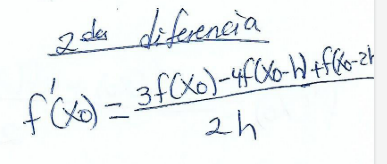 2da diferencia
f'(x₀) = 3f(x₀)-4f(x₀-h)+f(x₀-2h / 2h